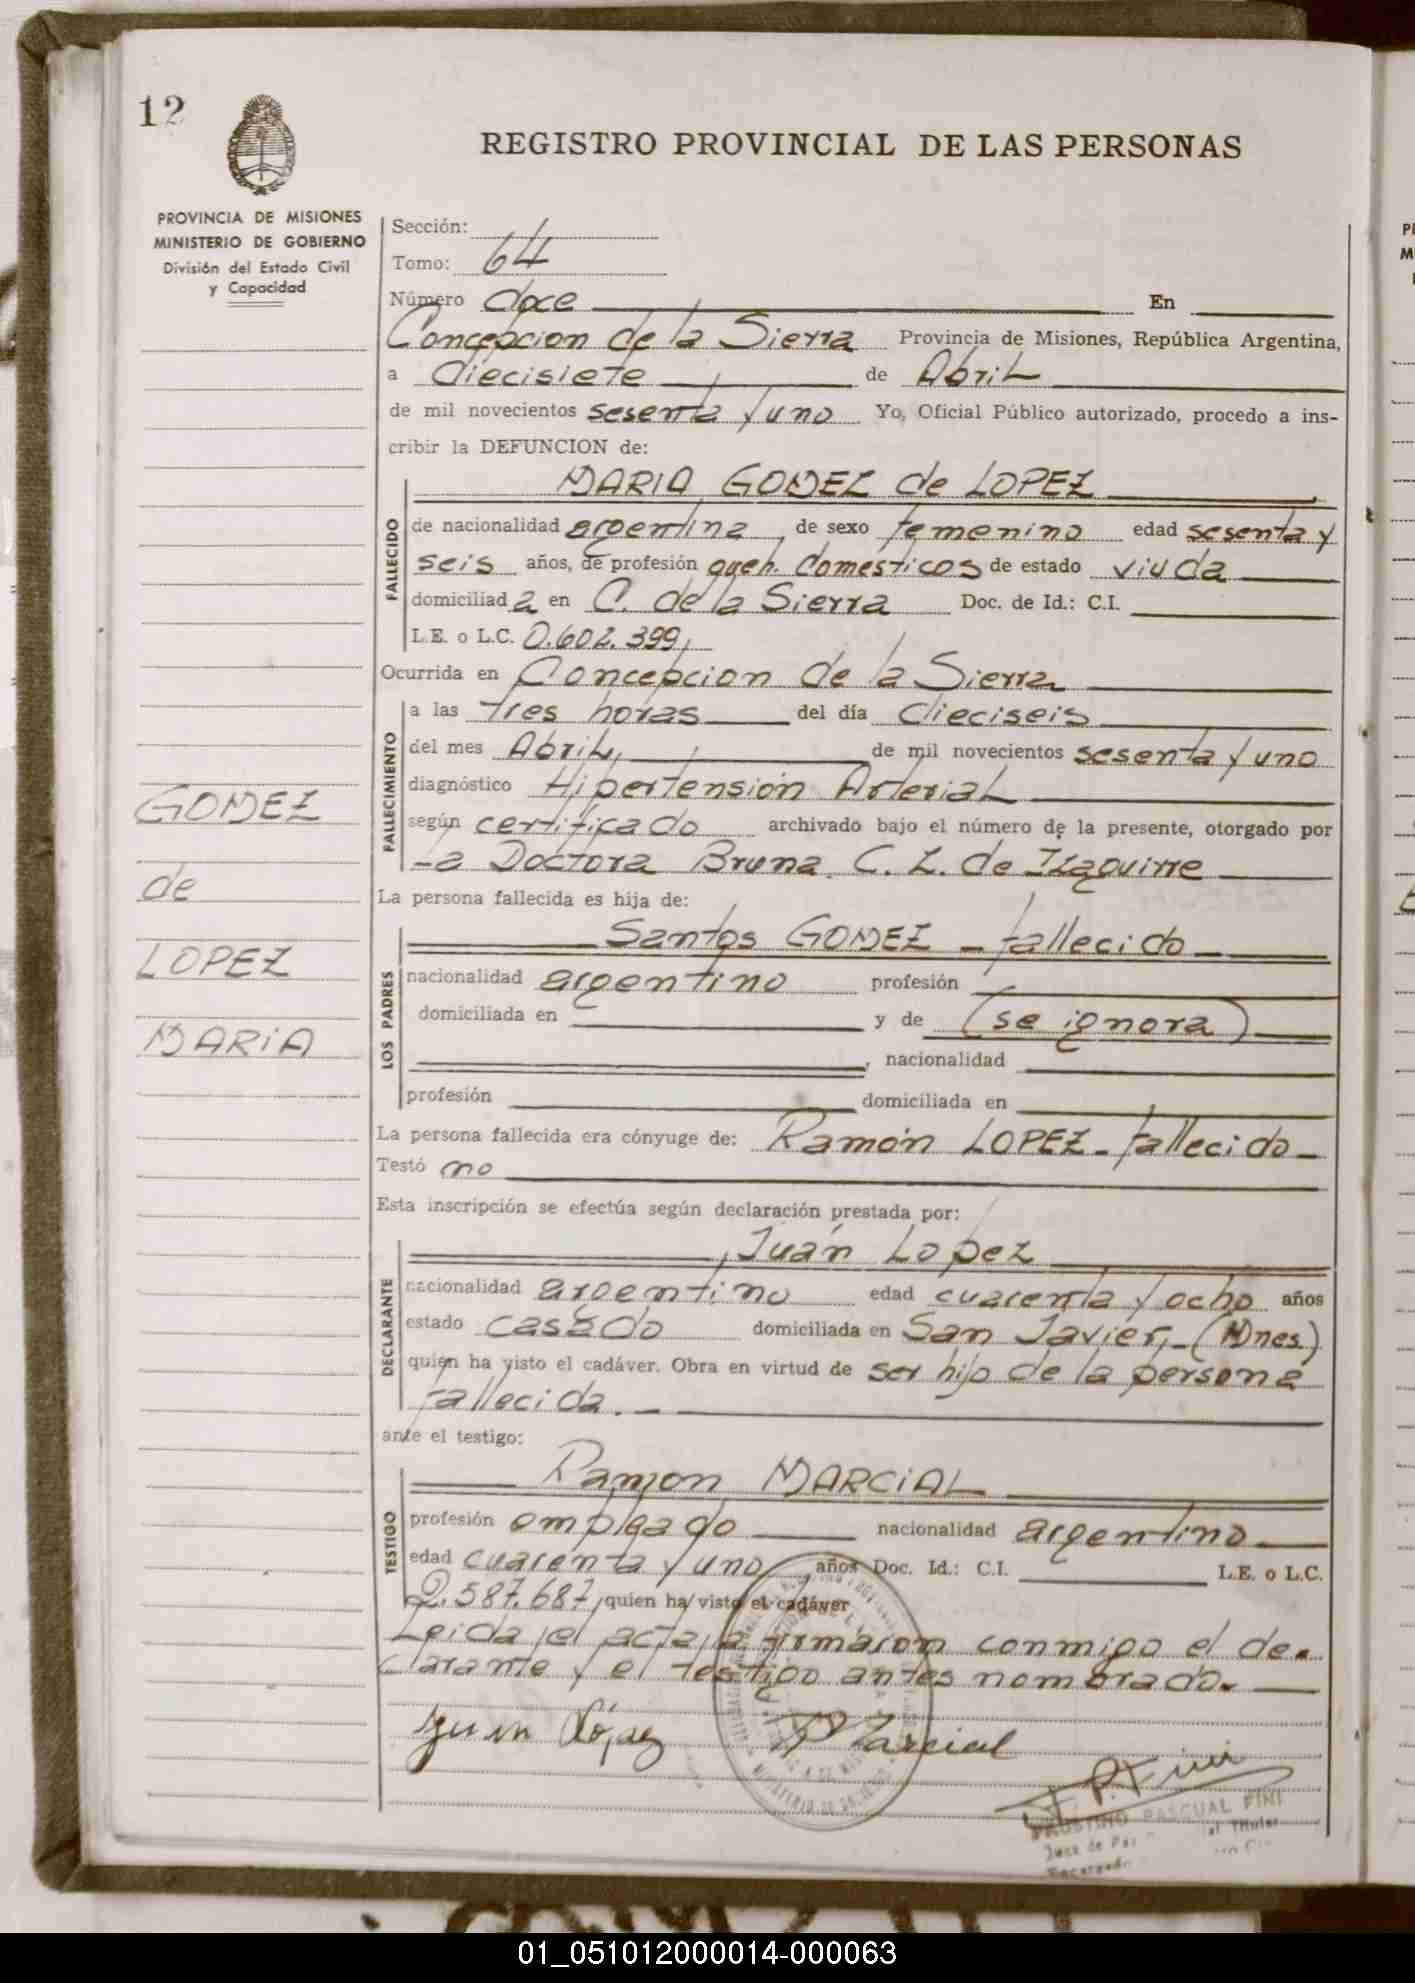 12
REGISTRO PROVINCIAL DE LAS PERSONAS
PROVINCIA DE MISIONES
MINISTERIO DE GOBIERNO
División del Estado Civil
y Capacidad
Sección:
Tomo: 64
Número doce En
Concepcion de la Sierra Provincia de Misiones, República Argentina,
a diecisiete de Abril
de mil novecientos sesenta y uno Yo, Oficial Público autorizado, procedo a ins-
cribir la DEFUNCION de:
MARIA GOMEZ de LOPEZ
FALLECIDO
de nacionalidad argentina, de sexo femenino edad sesenta y
seis años, de profesión queh. domesticos de estado viuda
domiciliada en C. de la Sierra Doc. de Id.: C.I.
L.E. o L.C. 0.602.399,
Ocurrida en Concepcion de la Sierra
FALLECIMIENTO
a las tres horas del día dieciseis
del mes Abril, de mil novecientos sesenta y uno
diagnóstico Hipertensión Arterial
según certificado archivado bajo el número de la presente, otorgado por
la Doctora Bruna C. L. de Izaguirre
GOMEZ
de
LOPEZ
MARIA
La persona fallecida es hija de:
LOS PADRES
Santos GOMEZ - fallecido
nacionalidad argentino profesión
domiciliada en y de (se ignora)
, nacionalidad
profesión domiciliada en
La persona fallecida era cónyuge de: Ramón LOPEZ - fallecido -
Testó no
Esta inscripción se efectúa según declaración prestada por:
DECLARANTE
Juán Lopez
nacionalidad argentino edad cuarenta y ocho años
estado casado domiciliada en San Javier, - (Mnes)
quien ha visto el cadáver. Obra en virtud de ser hijo de la persona
fallecida. -
ante el testigo:
TESTIGO
Ramon MARCIAL
profesión empleado nacionalidad argentino
edad cuarenta y uno años Doc. Id.: C.I. L.E. o L.C.
2.587.687, quien ha visto el cadáver
Leida el acta, la firmaron conmigo el de-
clarante y el testigo antes nombrado.
Juan López Marcial
F. P. Fini
FAUSTINO PASCUAL FINI
Juez de Paz Titular
Encargado
01_051012000014-000063